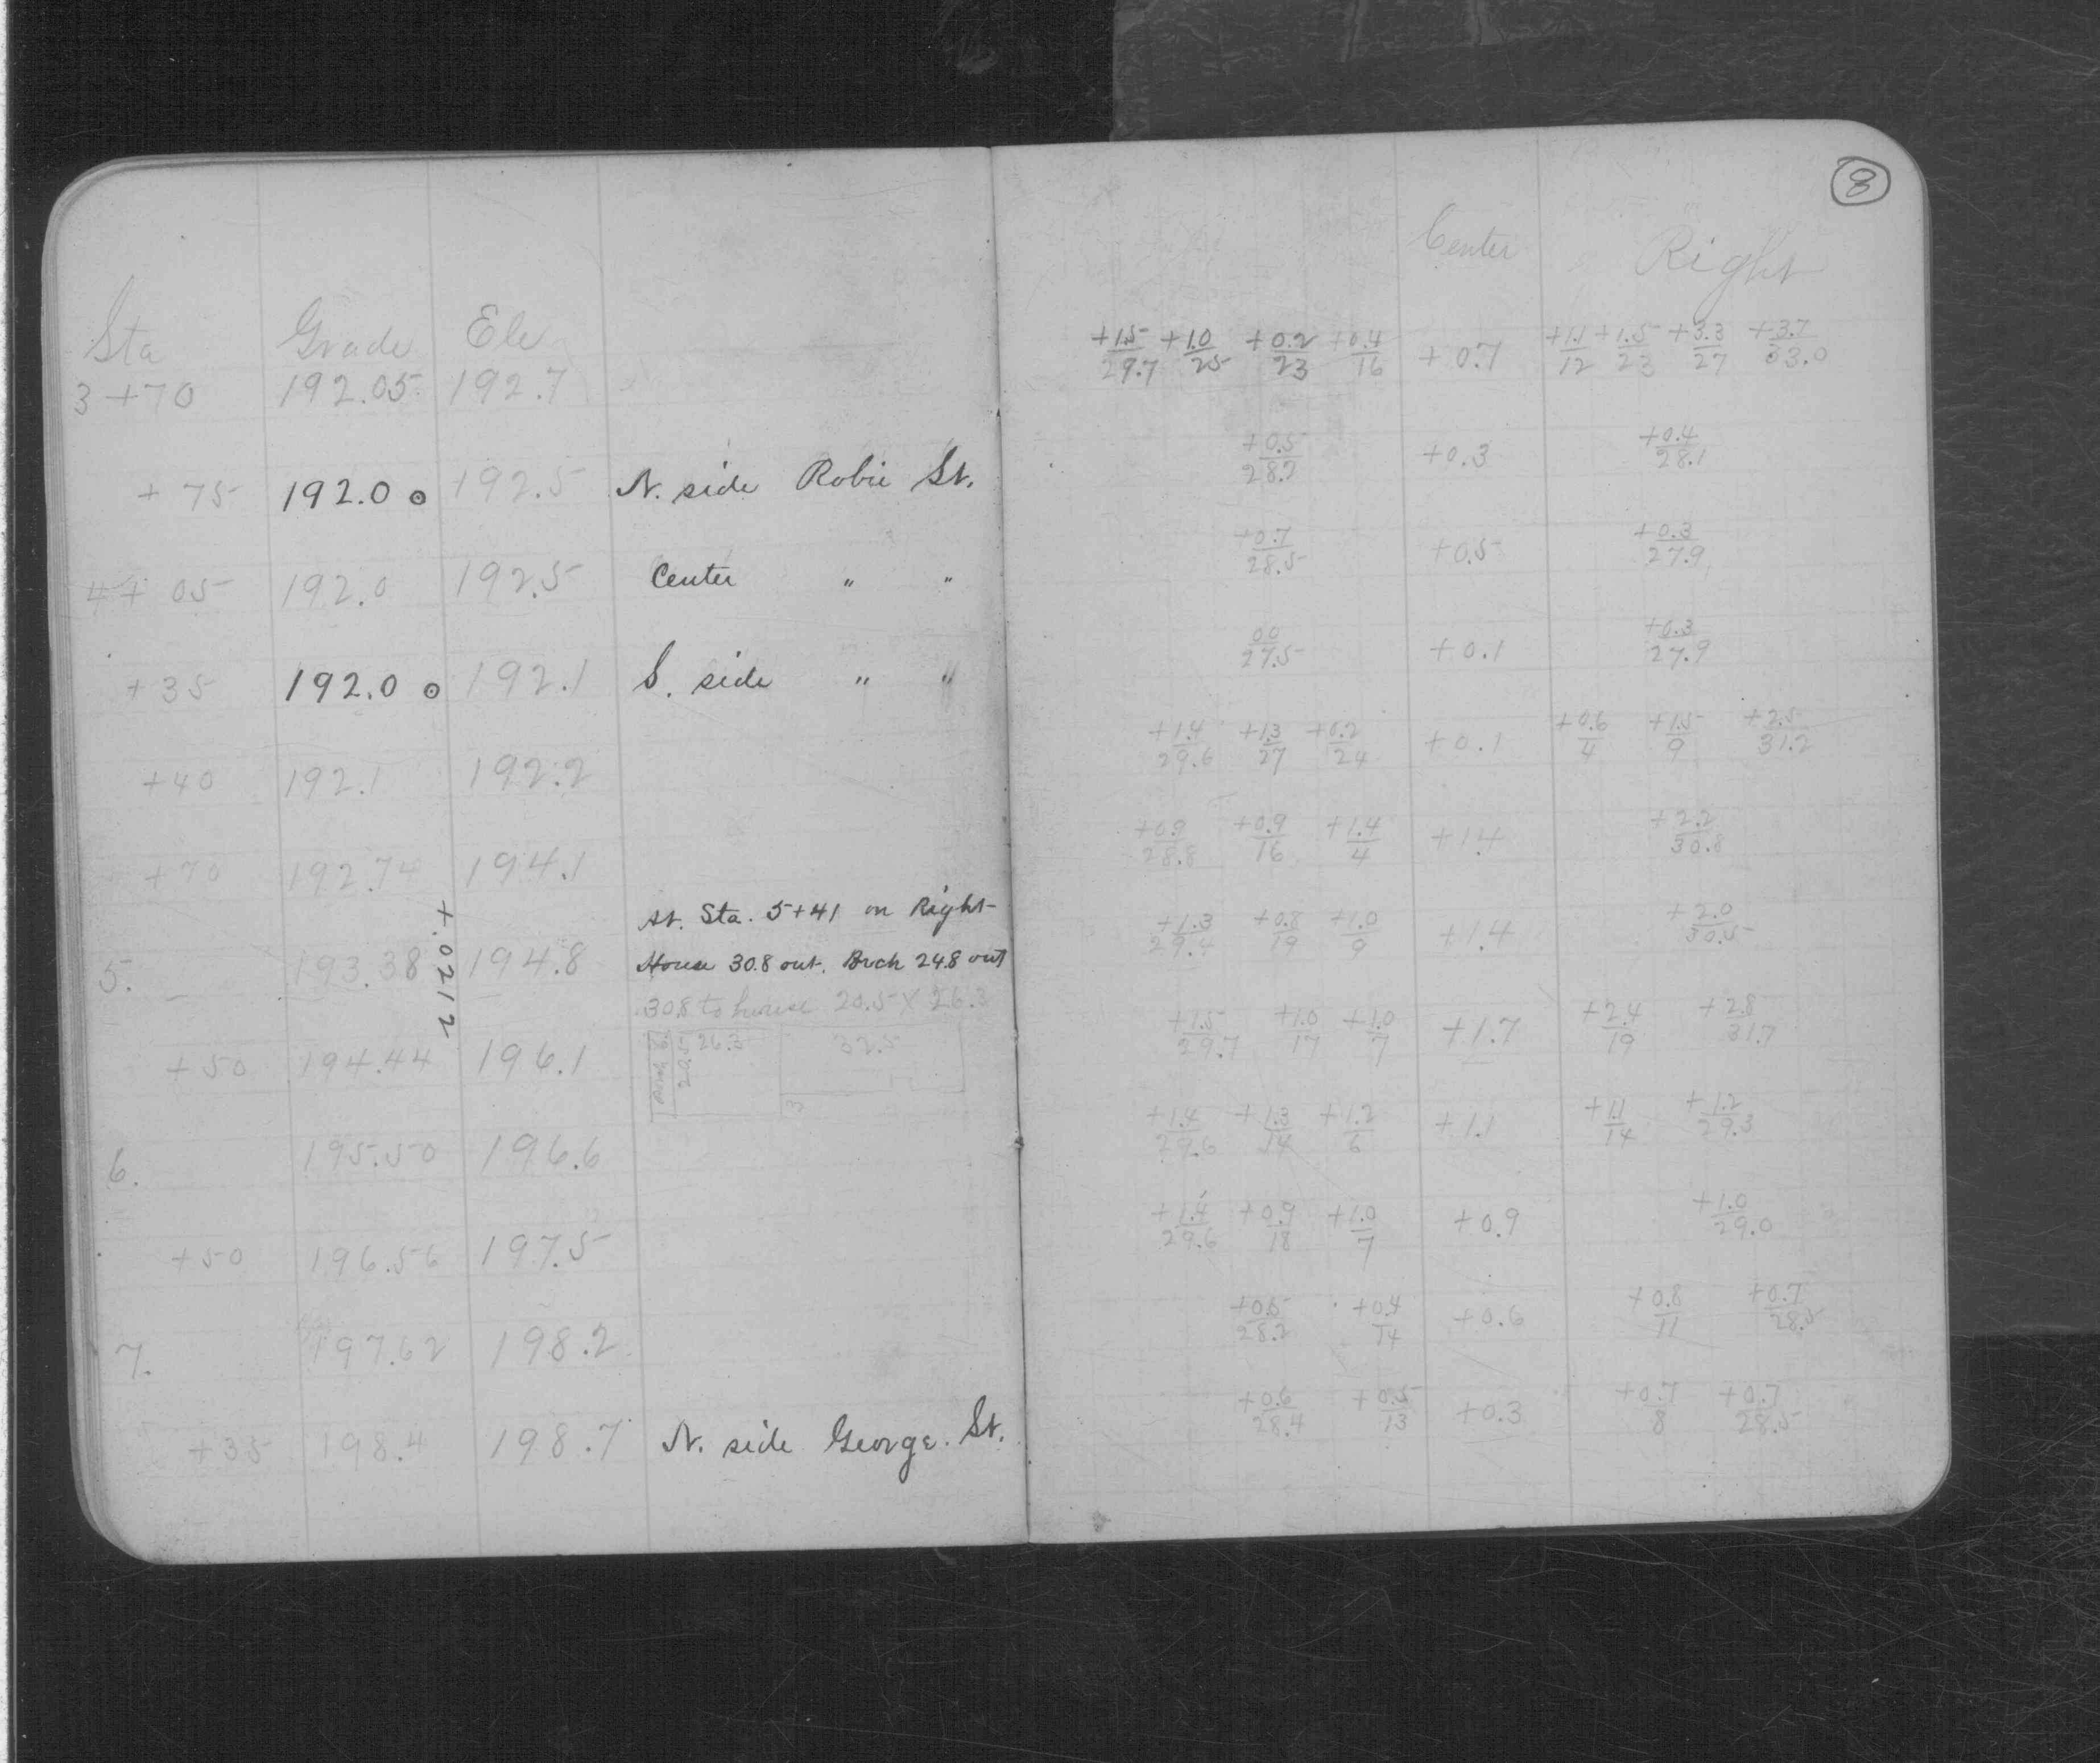 8
Center Right
Sta Grade Ele
3+70 192.05 192.7 +1.5/29.7 +1.0/25 +0.2/23 +0.4/16 +0.7 +1.1/12 +1.5/23 +3.3/27 +3.7/33.0
+75 192.0 o 192.5 N. side Robie St. +0.5/28.2 +0.3 +0.4/28.1
4+05 192.0 192.5 Center " " +0.7/28.5 +0.5 +0.3/27.9
+35 192.0 o 192.1 S. side " " 00/27.5 +0.1 +0.3/27.9
+40 192.1 192.2 +1.4/29.6 +1.3/27 +0.2/24 +0.1 +0.6/4 +1.5/9 +2.5/31.2
+70 192.74 194.1 +0.9/28.8 +0.9/16 +1.4/4 +1.4 +2.2/30.8
At. Sta. 5+41 on Right
5. 193.38 194.8 House 30.8 out. Porch 24.8 out +1.3/29.4 +0.8/19 +1.0/9 +1.4 +2.0/30.5
+.0212
30.8 to house 20.5 X 26.3
+50 194.44 196.1 Porch 20.5 26.3 32.5 +1.5/29.7 +1.0/17 +1.0/7 +1.7 +2.4/19 +2.8/31.7
3
6. 195.50 196.6 +1.4/29.6 +1.3/14 +1.2/6 +1.1 +1.1/14 +1.2/29.3
+50 196.56 197.5 +1.4/29.6 +0.9/18 +1.0/7 +0.9 +1.0/29.0
7. 197.62 198.2 +0.5/28.2 +0.4/14 +0.6 +0.8/11 +0.7/28.5
+35 198.4 198.7 N. side George. St. +0.6/28.4 +0.5/13 +0.3 +0.7/8 +0.7/28.5